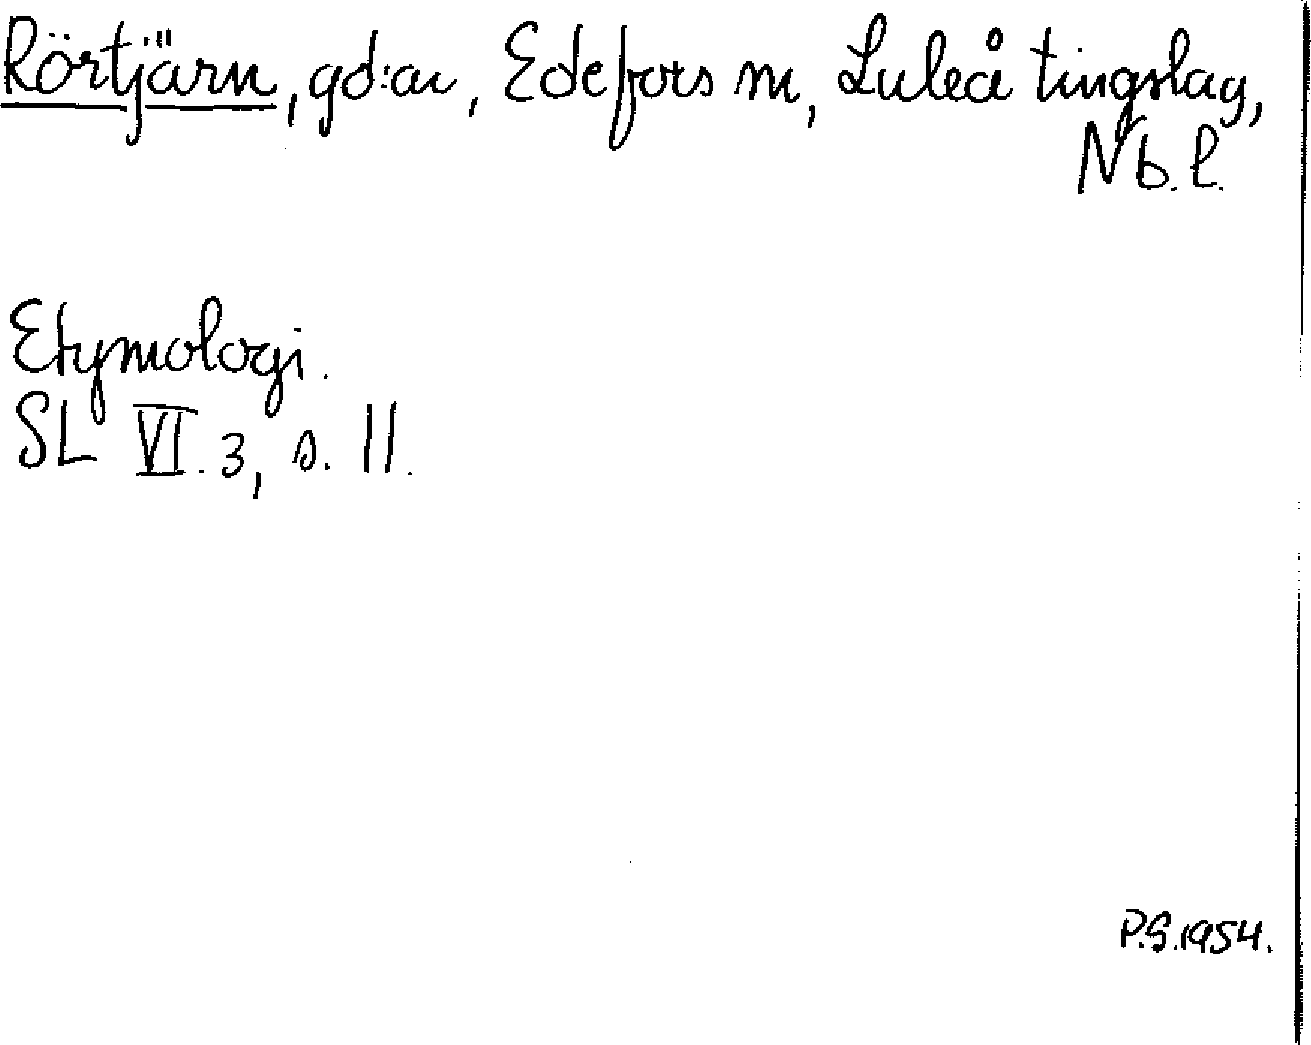 Rörtjärn, gd:ar, Edefors sn, Luleå tingslag,
Nb. l.
Etymologi.
SL VI. 3, s. 11.
P.S. 1954.